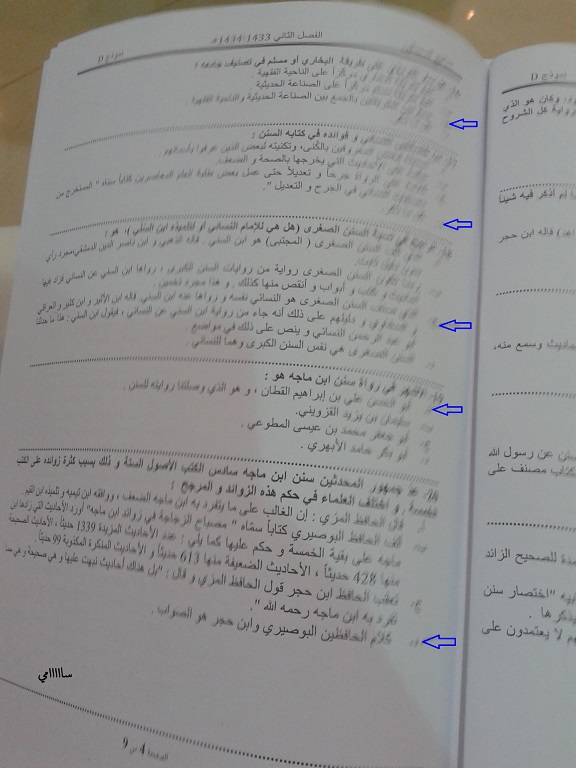 الفصل الثاني 1434/1433هـ
نموذج D
البخاري أو مسلم في تصنيف جامعه ؟
على الناحية الفقهية .
على الصناعة الحديثية
بالجمع بين الصناعة الحديثية والناحية الفقهية .
و فوائده في كتابه السنن :
المعروفين بالكنى، وتكنيته لبعض الذين عرفوا بأسمائهم .
التي يخرجها بالصحة و الضعف.
على الرواة جرحاً و تعديلاً حتى عمل بعض طلبة العلم المعاصرين كتاباً سماه " المستخرج من
النسائي في الجرح و التعديل ".
السنن الصغرى (هل هي للإمام النسائي أو لتلميذه ابن السني )، هو :
السنن الصغرى ( المجتبى) هو ابن السني . قاله الذهبي و ابن ناصر الدين الدمشقي.مجرد رأي
السنن الصغرى رواية من روايات السنن الكبرى ، رواها ابن السني عن النسائي فزاد فيها
و أبواب و أنقص منها كذلك . و هذا مجرد تخمين .
السنن الصغرى هو النسائي نفسه و رواها عنه ابن السني. قاله ابن الأثير و ابن كثير والعراقي
و دليلهم على ذلك أنه جاء من رواية ابن السني عن النسائي ، فيقول ابن السني : هذا ما حدثنا
أبو عبد الرحمن النسائي و ينص على ذلك في مواضع .
السنن الصغرى هي نفس السنن الكبرى وهما للنسائي .
في رواة سنن ابن ماجه هو :
أبو الحسن علي بن إبراهيم القطان ، و هو الذي وصلتنا روايته للسنن .
سليمان بن يزيد القزويني.
أبو جعفر محمد بن عيسى المطوعي .
أبو بكر حامد الأبهري .
جمهور المحدثين سنن ابن ماجه سادس الكتب الأصول الستة و ذلك بسبب كثرة زوائده على الكتب
، و اختلف العلماء في حكم هذه الزوائد و المرجح :
قال الحافظ المزي : إن الغالب على ما يتفرد به ابن ماجه الضعف ، ووافقه ابن تيميه و تلميذه ابن القيم .
ألف الحافظ البوصيري كتاباً سماه " مصباح الزجاجة في زوائد ابن ماجه" أورد الأحاديث التي زادها ابن
ماجه على بقية الخمسة و حكم عليها كما يلي : عدد الأحاديث المزيدة 1339 حديثاً ، الأحاديث الصحيحة
منها 428 حديثاً ، الأحاديث الضعيفة منها 613 حديثاً و الأحاديث المنكرة المكذوبة 99 حديثاً .
تعقب الحافظ ابن حجر قول الحافظ المزي و قال : "بل هناك أحاديث نبهت عليها و هي صحيحة و هي مما
تفرد به ابن ماجه رحمه الله ".
كلام الحافظين البوصيري وابن حجر هو الصواب .
سااااامي
الصفحة 4 من 9
نموذج D
وكان هو الذي
رواية كل الشروح
لم أذكر فيه شيئاً
قاله ابن حجر
وسمع منه،
عن رسول الله
كتاب مصنف على
للصحيح الزائد
"اختصار سنن
يذكرها .
لا يعتمدون على